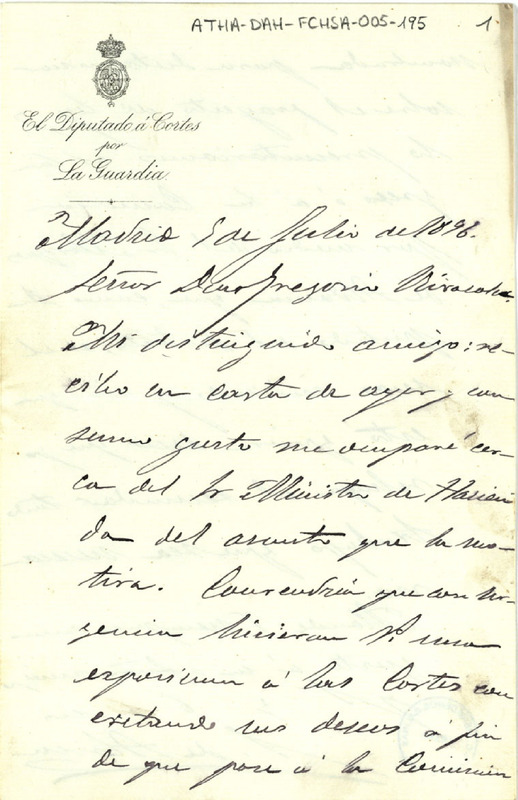 ATHA-DAH-FCHSA-005-195 1
El Diputado á Cortes
por
La Guardia
Madrid 5 de Julio de 1896.
Señor Don Gregorio
Mi distinguido amigo: re-
cibo su carta de ayer, y con
sumo gusto me ocuparé cer-
ca del Sr Ministro de Hacien
da del asunto que la mo-
tiva. Convendría que con ur-
gencia hicieran Vs. una
exposicion á las Cortes con
cretando sus deseos á fin
de que pase á la Comision